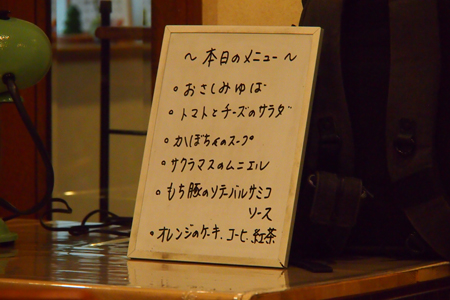 ～本日のメニュー～
・おさしみゆば
・トマトとチーズのサラダ
・かぼちゃのスープ
・サクラマスのムニエル
・もち豚のソテーバルサミコ
ソース
・オレンジのケーキ、コーヒー、紅茶